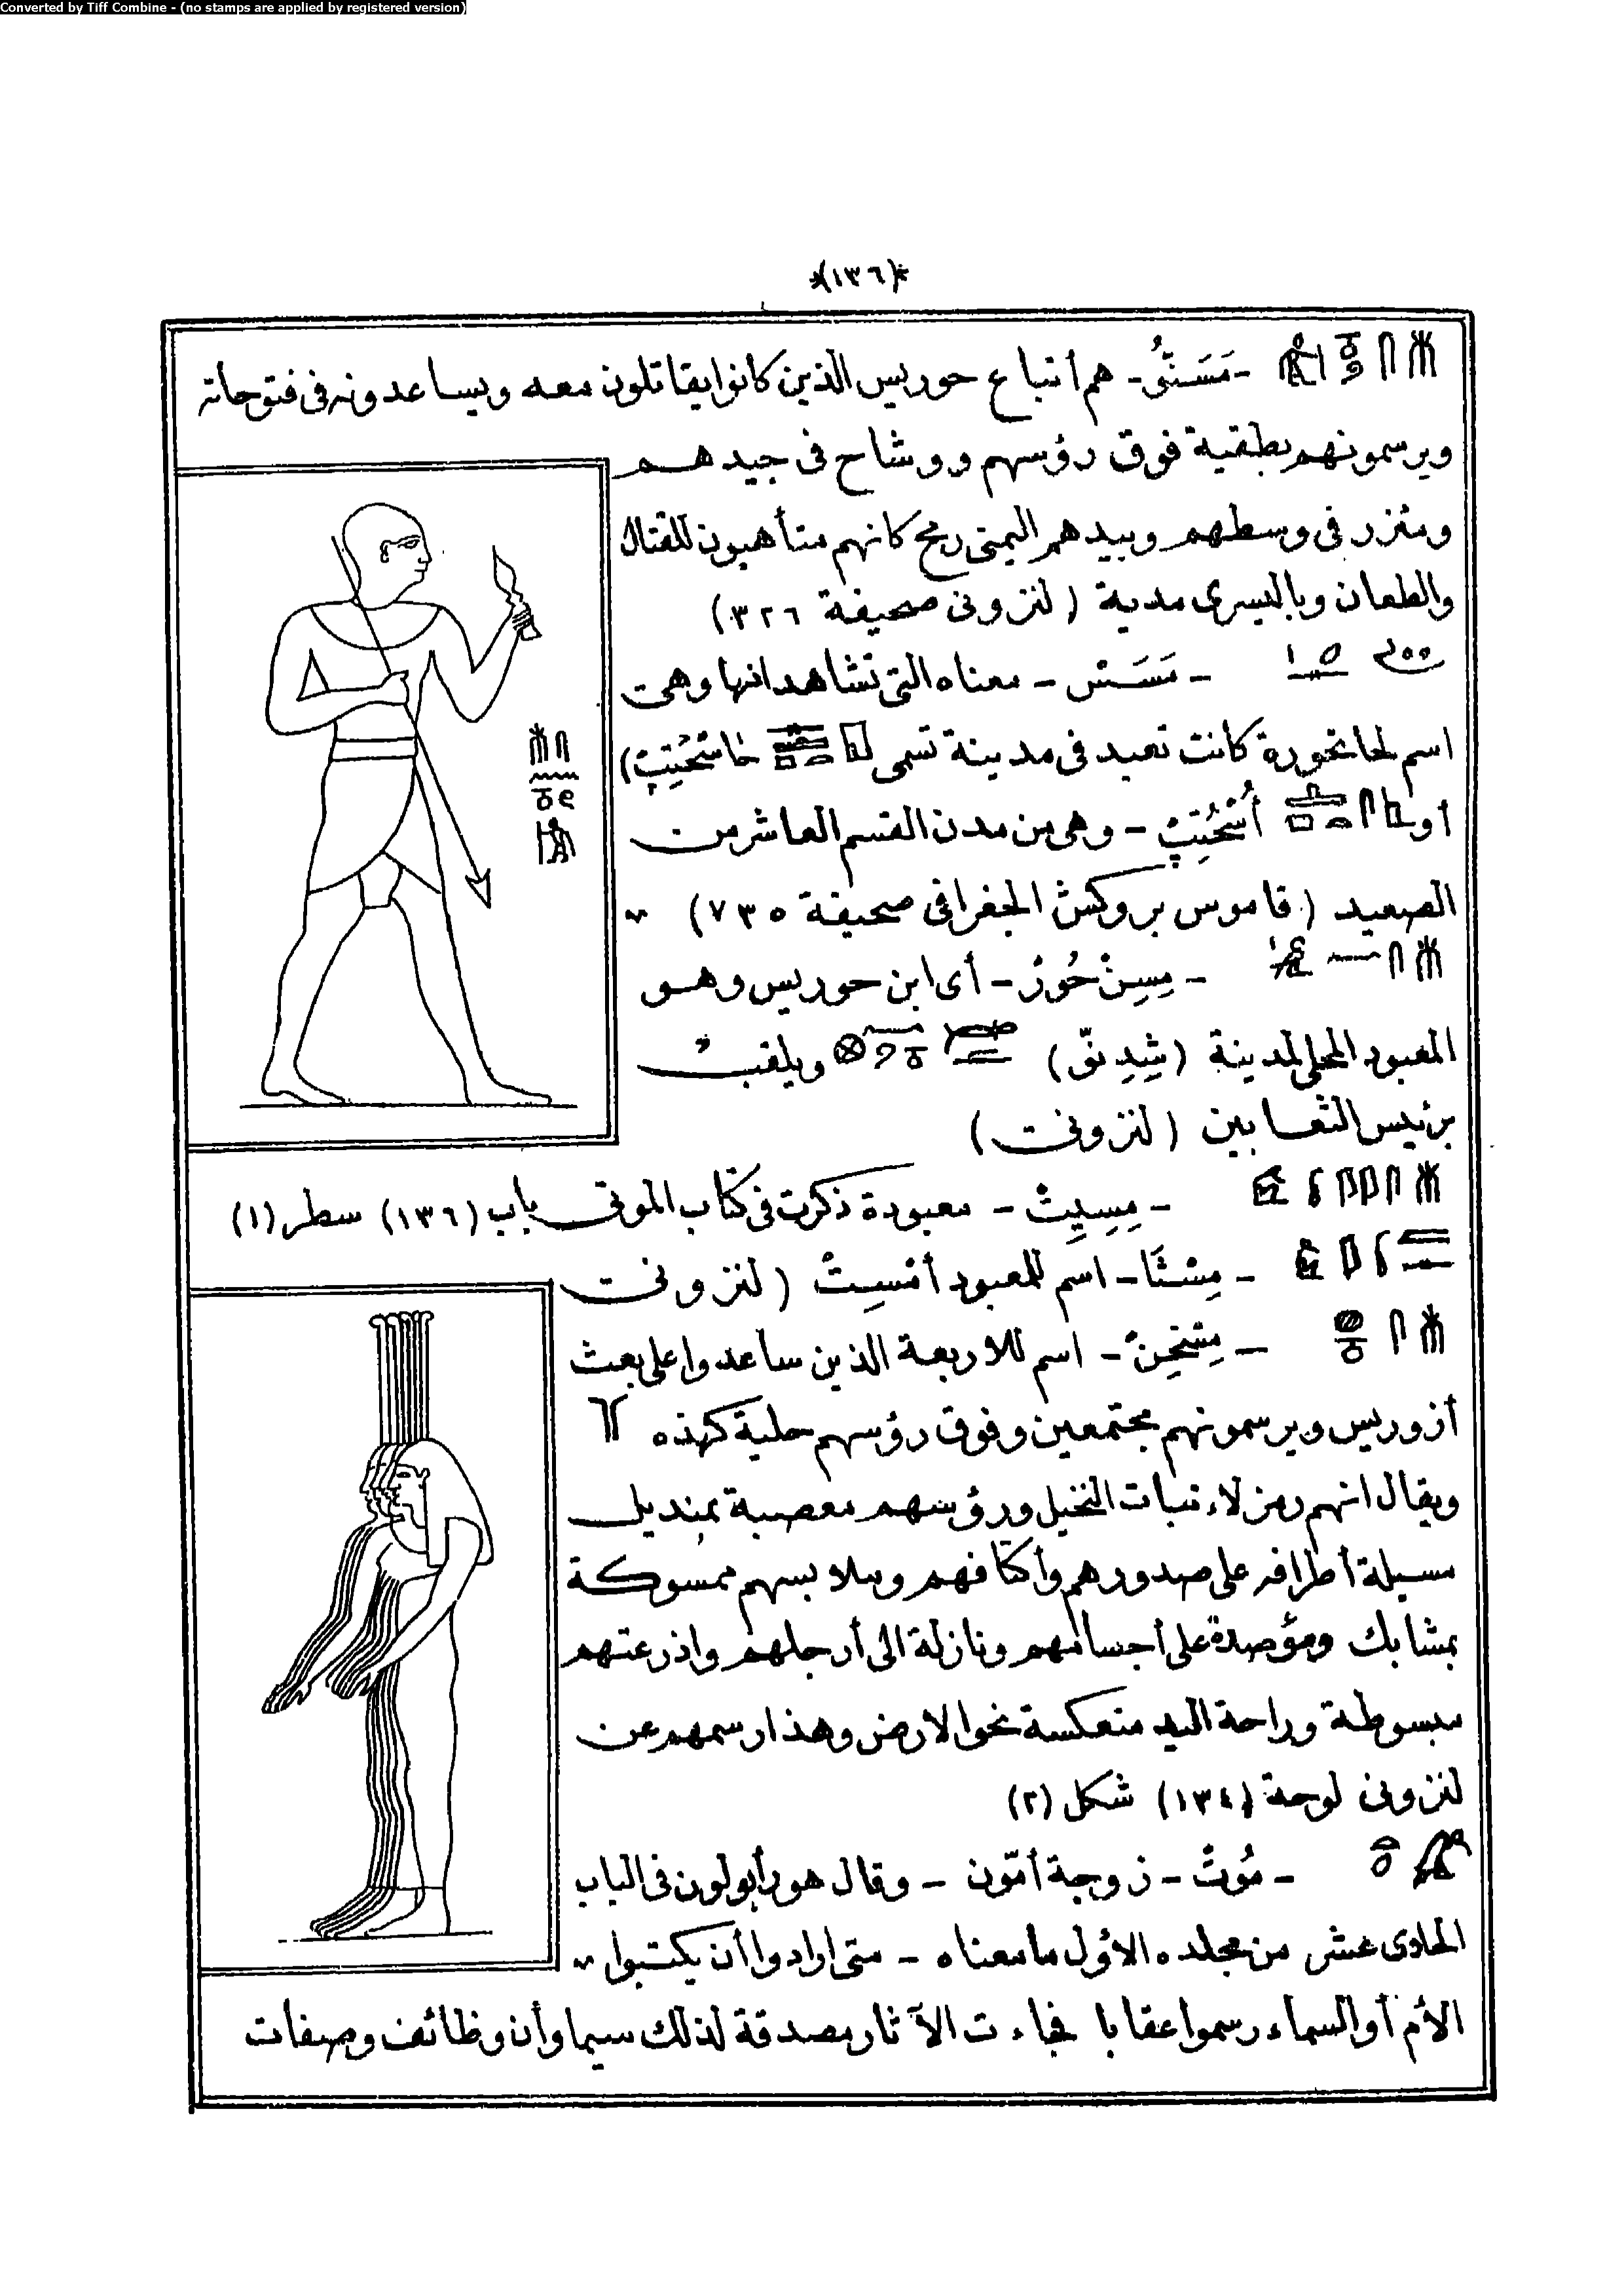 Converted by Tiff Combine - (no stamps are applied by registered version)
*(١٣٦)*
- مَسَنْتُو - هم أتباع حوريس الذين كانوا يقاتلون معه ويساعدونه فى فتوحاته
ويرسمونهم بطقية فوق رؤسهم ووشاح فى جيدهم
ومئزر فى وسطهم وبيدهم اليمنى رمح كانهم متأهبون للقتال
والطعان وباليسرى مدية (لنزونى صحيفة ٣٢٦)
- معناه التى تشاهد انها وهى
اسم لحاتحورة كانت تعبد فى مدينة تسمى
او - وهى من مدن القسم العاشر من
الصعيد (قاموس بروكش الجغرافى صحيفة ٧٣٥)
- مِسِنْ حُورْ - أى ابن حوريس وهو
المعبود المحلى لمدينة ويلقب
برئيس الثعابين (لنزونى)
- مِسِيِتْ - معبودة ذكرت فى كتاب الموتى باب (١٣٦) سطر (١)
- مِسْتَا - اسم للمعبود أمْسِتْ (لنزونى
- مِسْخِنْ - اسم للاربعة الذين ساعدوا على بعث
أزوريس ويرسمونهم مجتمعين وفوق رؤسهم حلية كهذه
ويقال انهم رمز لاء نبات النخيل ورؤسهم معصبة بمنديل
مسبلة أطرافه على صدورهم وأكتافهم وملابسهم ممسوكة
بمشابك ومؤصدة على أجسامهم ونازلة الى أرجلهم واذرعتهم
مبسوطة وراحة اليد منعكسة نحو الارض وهذا رسمهم عن
لنزونى لوحة (١٣٤) شكل (٢)
- مُوتْ - زوجة أمّون - وقال هورأبولون فى الباب
الحادى عشر من مجلده الاوّل ما معناه - متى ارادوا أن يكتبوا
الأم أو السماء رسموا عقابا فجاءت الآثار مصدقة لذلك سيما وأن وظائف وصفات